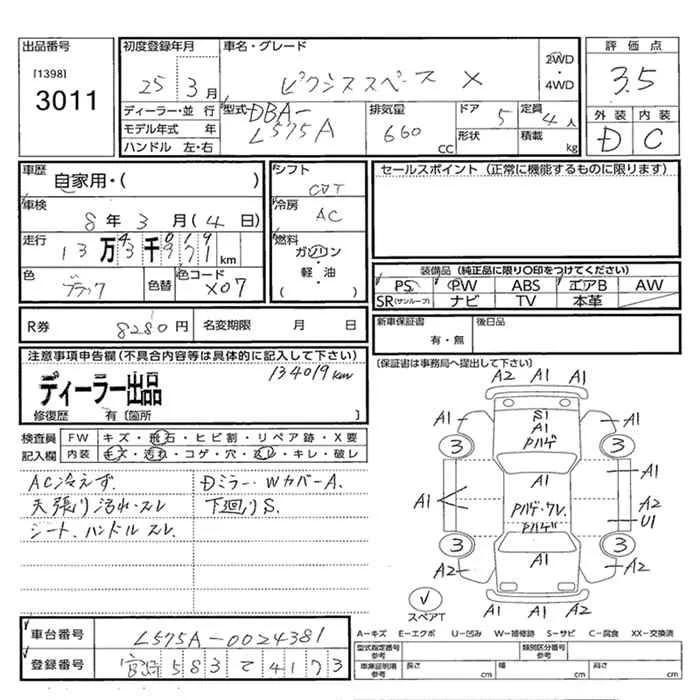 出品番号
[1398]
3011
初度登録年月
25 3月
車名・グレード
ピクシススペース X
2WD
・
4WD
評価点
3.5
外装 内装
D C
ディーラー・並 行
モデル年式 年
ハンドル 左・右
型式 DBA-
L575A
排気量
660 CC
ドア 5
形状
定員 4人
積載 kg
車歴
自家用・( )
車検
8年 3月 (4日)
走行
13万 千 km
色
ブラック
色替
色コード
X07
シフト
CVT
冷房
AC
燃料
ガソリン
・
軽・油
( )
セールスポイント (正常に機能するものに限ります)
装備品 (純正品に限り○印をつけてください)
PS PW ABS エアB AW
SR(サンルーフ) ナビ TV 本革
R券 8280円 名変期限 月 日
新車保証書
有・無
後日品
(保証書は事務局へ提出して下さい)
注意事項申告欄(不具合内容等は具体的に記入して下さい)
134019km
ディーラー出品
修復歴 有 [箇所 ]
検査員
記入欄
FW キズ・飛石・ヒビ割・リペア跡・X要
内装 キズ・汚れ・コゲ・穴・スレ・キレ・破レ
AC冷えず.
天張り汚れ・スレ
シート、ハンドルスレ.
Dミラー・WカバーA.
下廻りS.
A2 A1 A1
A1 S1 A1
A1
Pハゲ
3 3
A1
A1 A1
Pハゲ・ワレ A2
Pハゲ U1
3 3
A2 A1 A2
スペアT
A1 A1 A2
A-キズ E-エクボ U-凹み W-補修跡 S-サビ C-腐食 XX-交換済
車台番号 L575A-0024381
登録番号 宮崎 583 て 4173
型式指定番号
参考
類別区分番号
参考
車庫証明用
参考
長さ cm 幅 cm 高さ cm